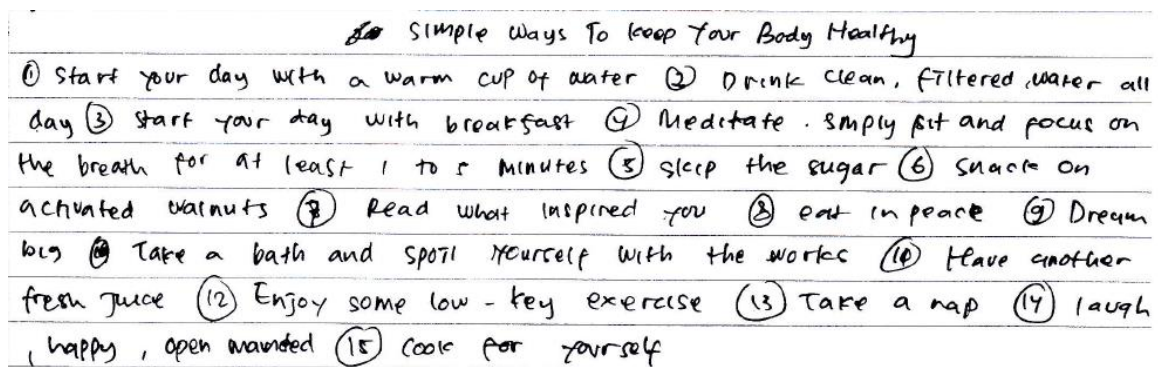 Simple Ways To keep Your Body Healthy
① Start your day with a warm cup of water ② Drink clean, filtered, water all
day ③ start your day with breakfast ④ Meditate. smply sit and focus on
the breath for at least 1 to 5 minutes ⑤ skip the sugar ⑥ snack on
activated walnuts ⑦ Read what inspired you ⑧ eat in peace ⑨ Dream
big ⑩ Take a bath and spoil yourself with the works ⑪ Have another
fresh Juice ⑫ Enjoy some low - key exercise ⑬ Take a nap ⑭ laugh
, happy, open mainded ⑮ cook for yourself